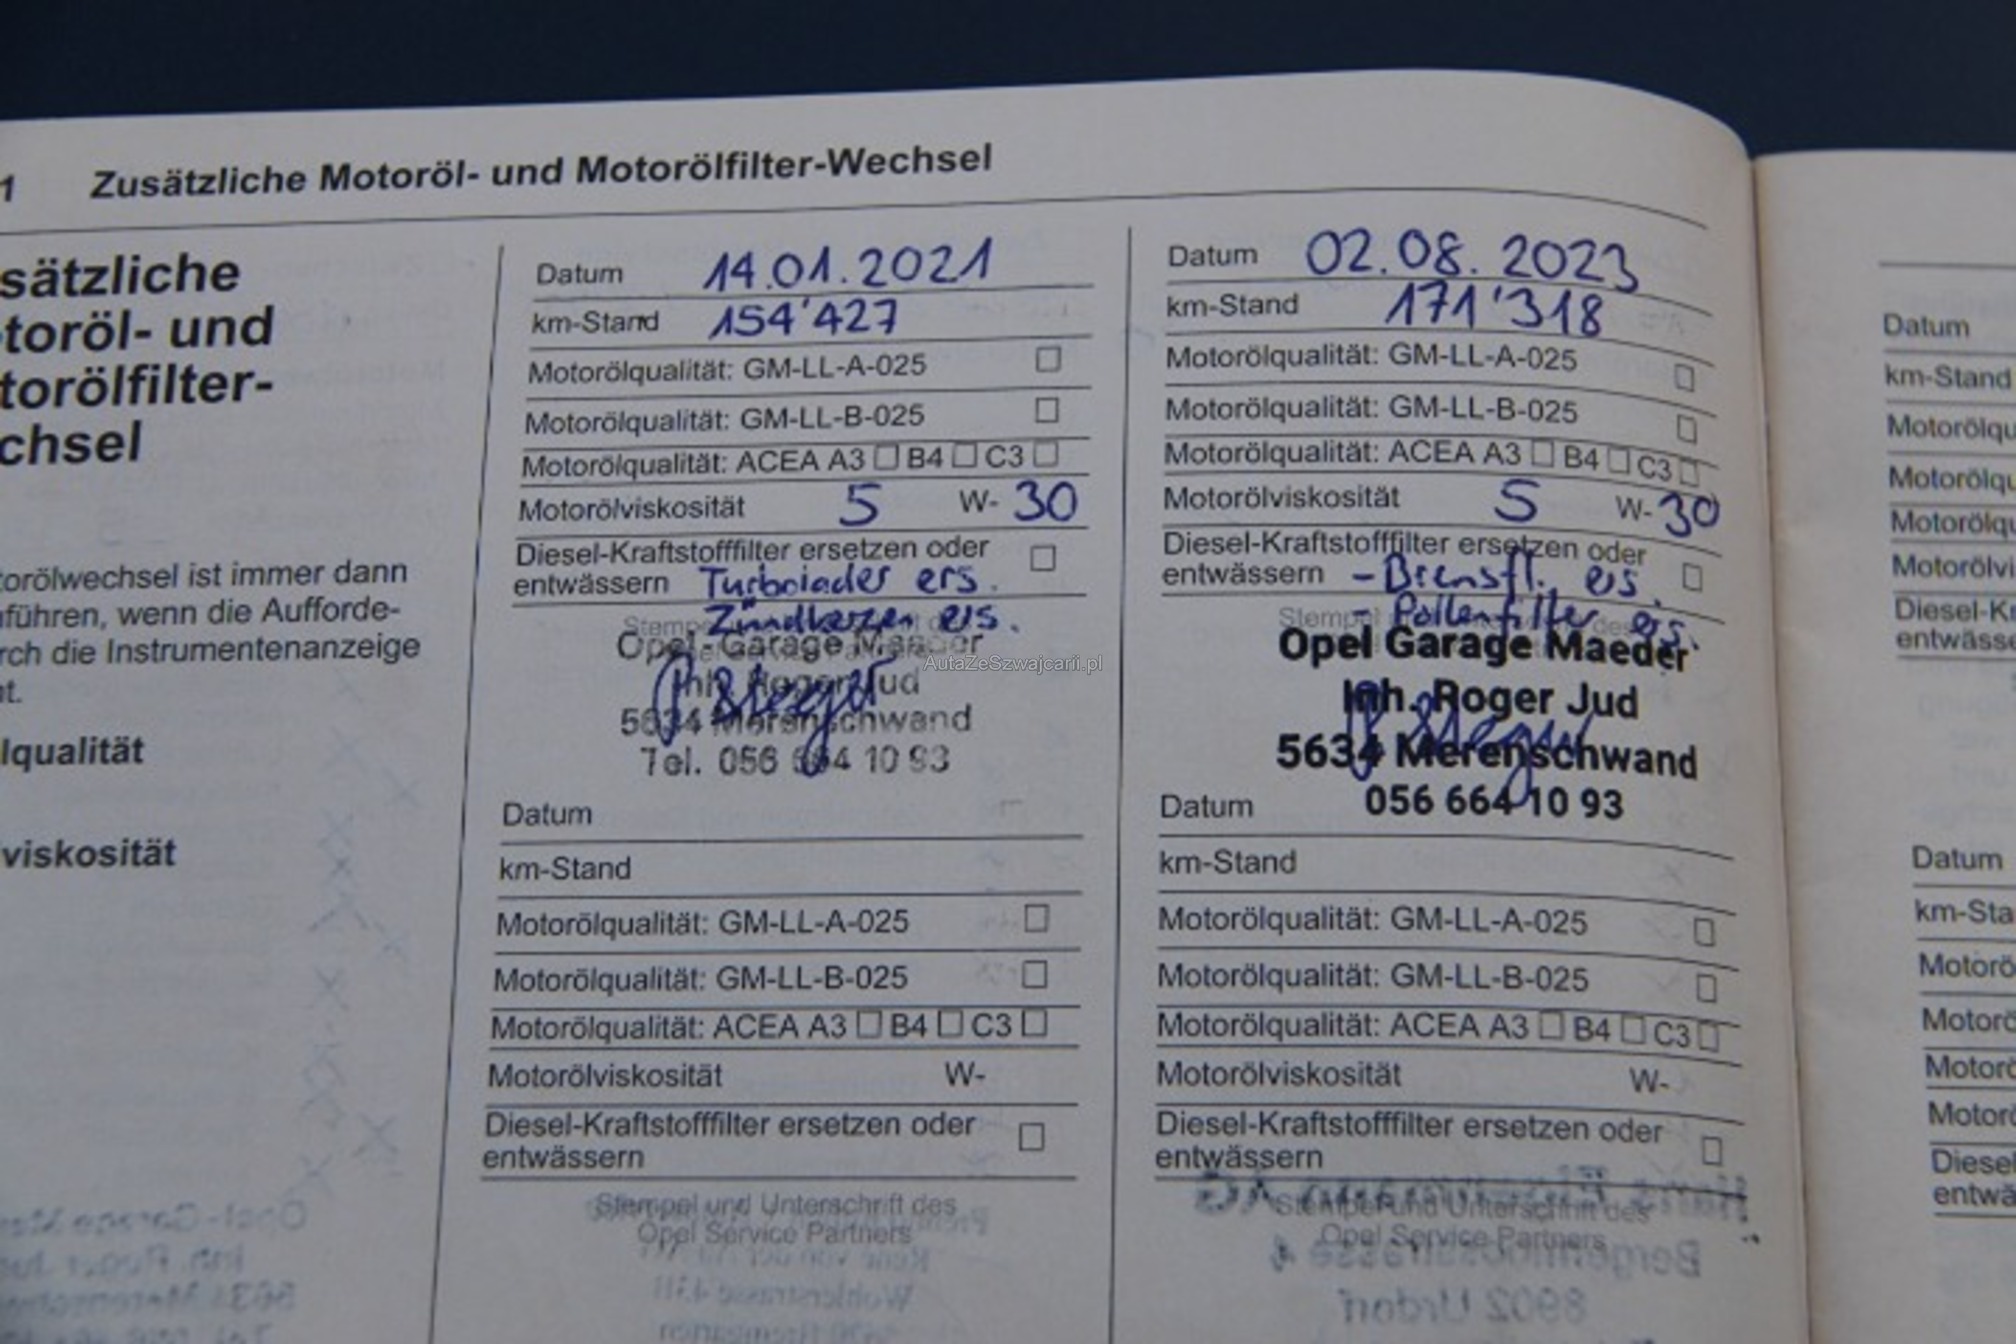 1 Zusätzliche Motoröl- und Motorölfilter-Wechsel
sätzliche
toröl- und
torölfilter-
chsel
torölwechsel ist immer dann
führen, wenn die Aufforde-
rch die Instrumentenanzeige
t.
lqualität
viskosität
Datum 14.01.2021
km-Stand 154'427
Motorölqualität: GM-LL-A-025 ☐
Motorölqualität: GM-LL-B-025 ☐
Motorölqualität: ACEA A3 ☐ B4 ☐ C3 ☐
Motorölviskosität 5 W- 30
Diesel-Kraftstofffilter ersetzen oder ☐
entwässern Turbolader ers.
Zündkerzen ers.
Opel-Garage Maeder
Inh. Roger Jud
5634 Merenschwand
Tel. 056 664 10 93
Datum
km-Stand
Motorölqualität: GM-LL-A-025 ☐
Motorölqualität: GM-LL-B-025 ☐
Motorölqualität: ACEA A3 ☐ B4 ☐ C3 ☐
Motorölviskosität W-
Diesel-Kraftstofffilter ersetzen oder ☐
entwässern
Stempel und Unterschrift des
Opel Service Partners
Datum 02.08.2023
km-Stand 171'318
Motorölqualität: GM-LL-A-025 ☐
Motorölqualität: GM-LL-B-025 ☐
Motorölqualität: ACEA A3 ☐ B4 ☐ C3 ☐
Motorölviskosität 5 W- 30
Diesel-Kraftstofffilter ersetzen oder ☐
entwässern - Bremsfl. ers.
- Pollenfilter ers.
Opel Garage Maeder
Inh. Roger Jud
5634 Merenschwand
056 664 10 93
Datum
km-Stand
Motorölqualität: GM-LL-A-025 ☐
Motorölqualität: GM-LL-B-025 ☐
Motorölqualität: ACEA A3 ☐ B4 ☐ C3 ☐
Motorölviskosität W-
Diesel-Kraftstofffilter ersetzen oder ☐
entwässern
Stempel und Unterschrift des
Opel Service Partners
Datum
km-Stand
Motorölqu
Motorölqu
Motorölq
Motorölvi
Diesel-K
entwässe
Datum
km-Sta
Motorö
Motorö
Motorö
Motorö
Diesel
entwä
AutaZeSzwajcarii.pl